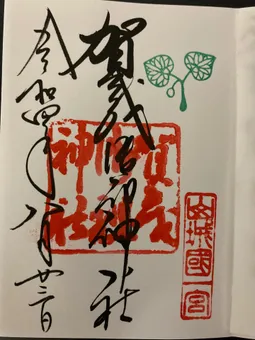 山城國一宮
賀茂御祖神社
賀茂
神社
令和四年八月廿三日